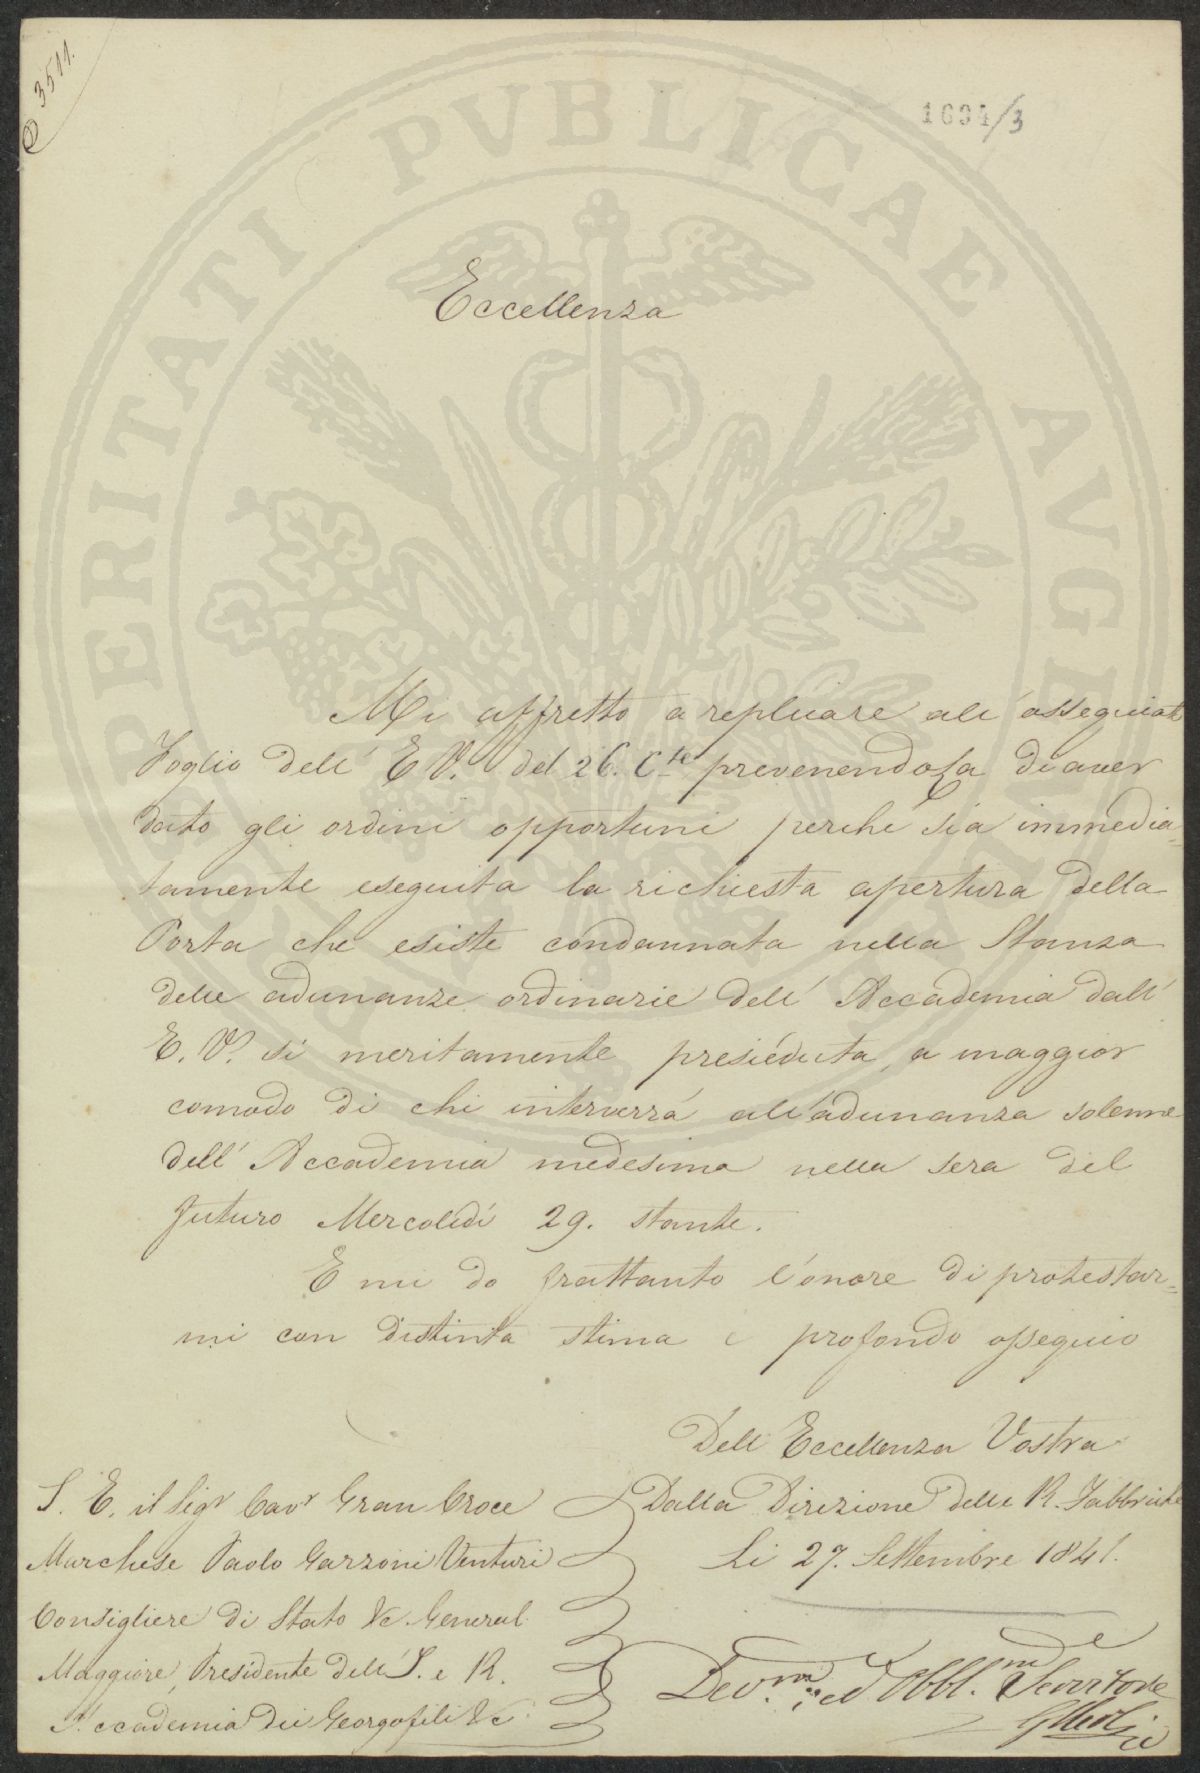 3511.
1694/3
PROSPERITATI PVBLICAE AVGENDAE
Eccellenza
Mi affretto a replicare all' ossequiato
Foglio dell' E V. del 26. C.te prevenendola di aver
dato gli ordini opportuni perché sia immedia=
tamente eseguita la richiesta apertura della
Porta che esiste condannata nella Stanza
delle adunanze ordinarie dell' Accademia dall'
E. V. sì meritamente presieduta, a maggior
comodo di chi interverrà all'adunanza solenne
dell' Accademia medesima nella sera del
futuro Mercoledì 29. stante.
E mi do frattanto l'onore di protestar=
mi con distinta stima e profondo ossequio
Dell Eccellenza Vostra
Dalla Direzione delle R. Fabbriche
Li 27. Settembre 1841.
Dev.mo ed Obbl.mo Servitore
S. E. il Sigr Cavr Gran Croce
Marchese Paolo Garzoni Venturi
Consigliere di Stato &c General
Maggiore, Presidente dell' I. e R.
Accademia dei Georgofili &c